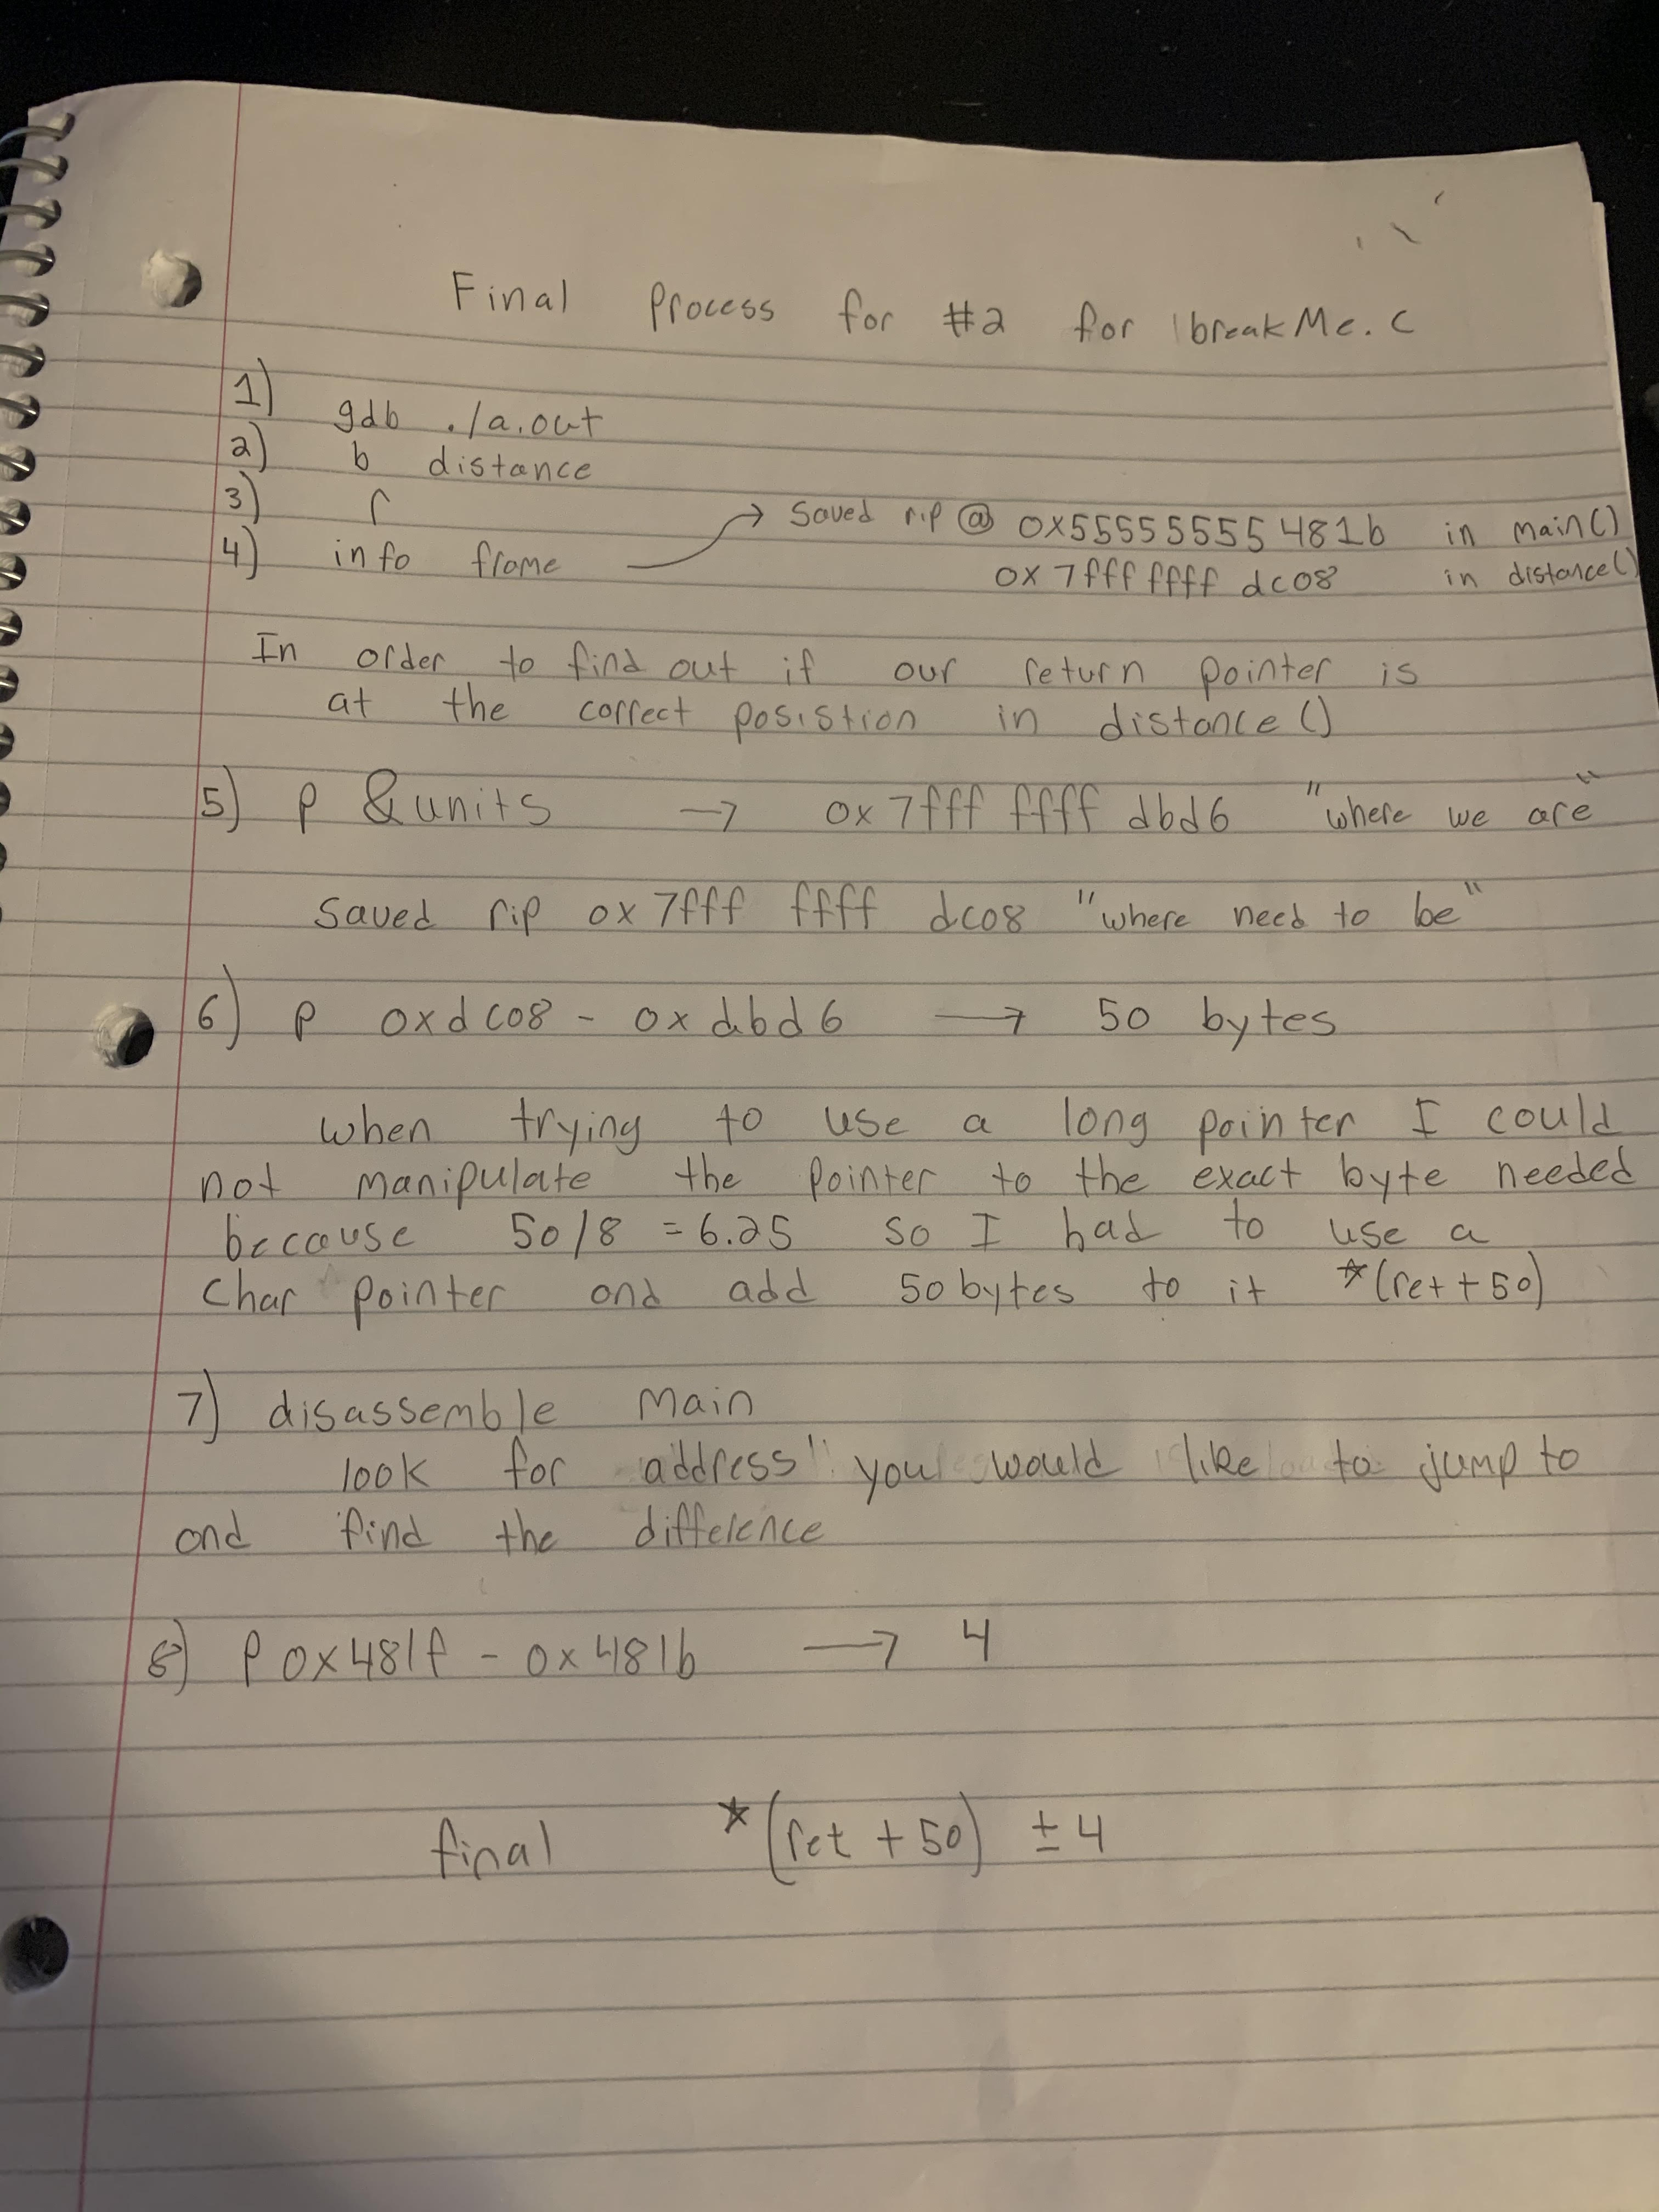 Final Process for #2 for breakMe.c
1) gdb ./a.out
2) b distance
3) r
4) info frame → Saved rip @ 0x55555555481b in main()
0x7fff ffff dc08 in distance()
In order to find out if our return pointer is
at the correct posistion in distance()
5) p &units → 0x7fff ffff dbd6 "where we are"
Saved rip 0x7fff ffff dc08 "where need to be"
6) p 0xdc08 - 0xdbd6 → 50 bytes
when trying to use a long pointer I could
not manipulate the pointer to the exact byte needed
because 50/8 = 6.25 so I had to use a
char pointer and add 50 bytes to it *(ret + 50)
7) disassemble main
look for address you would like to jump to
and find the difference
8) p 0x481f - 0x481b → 4
final *(ret + 50) ± 4